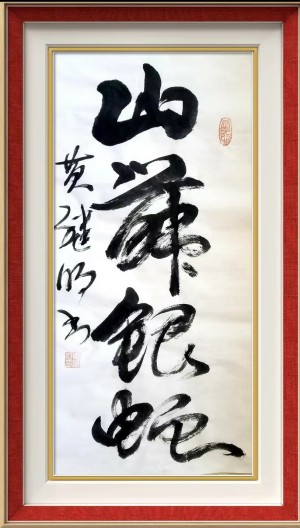 山舞銀蛇
黄继明书